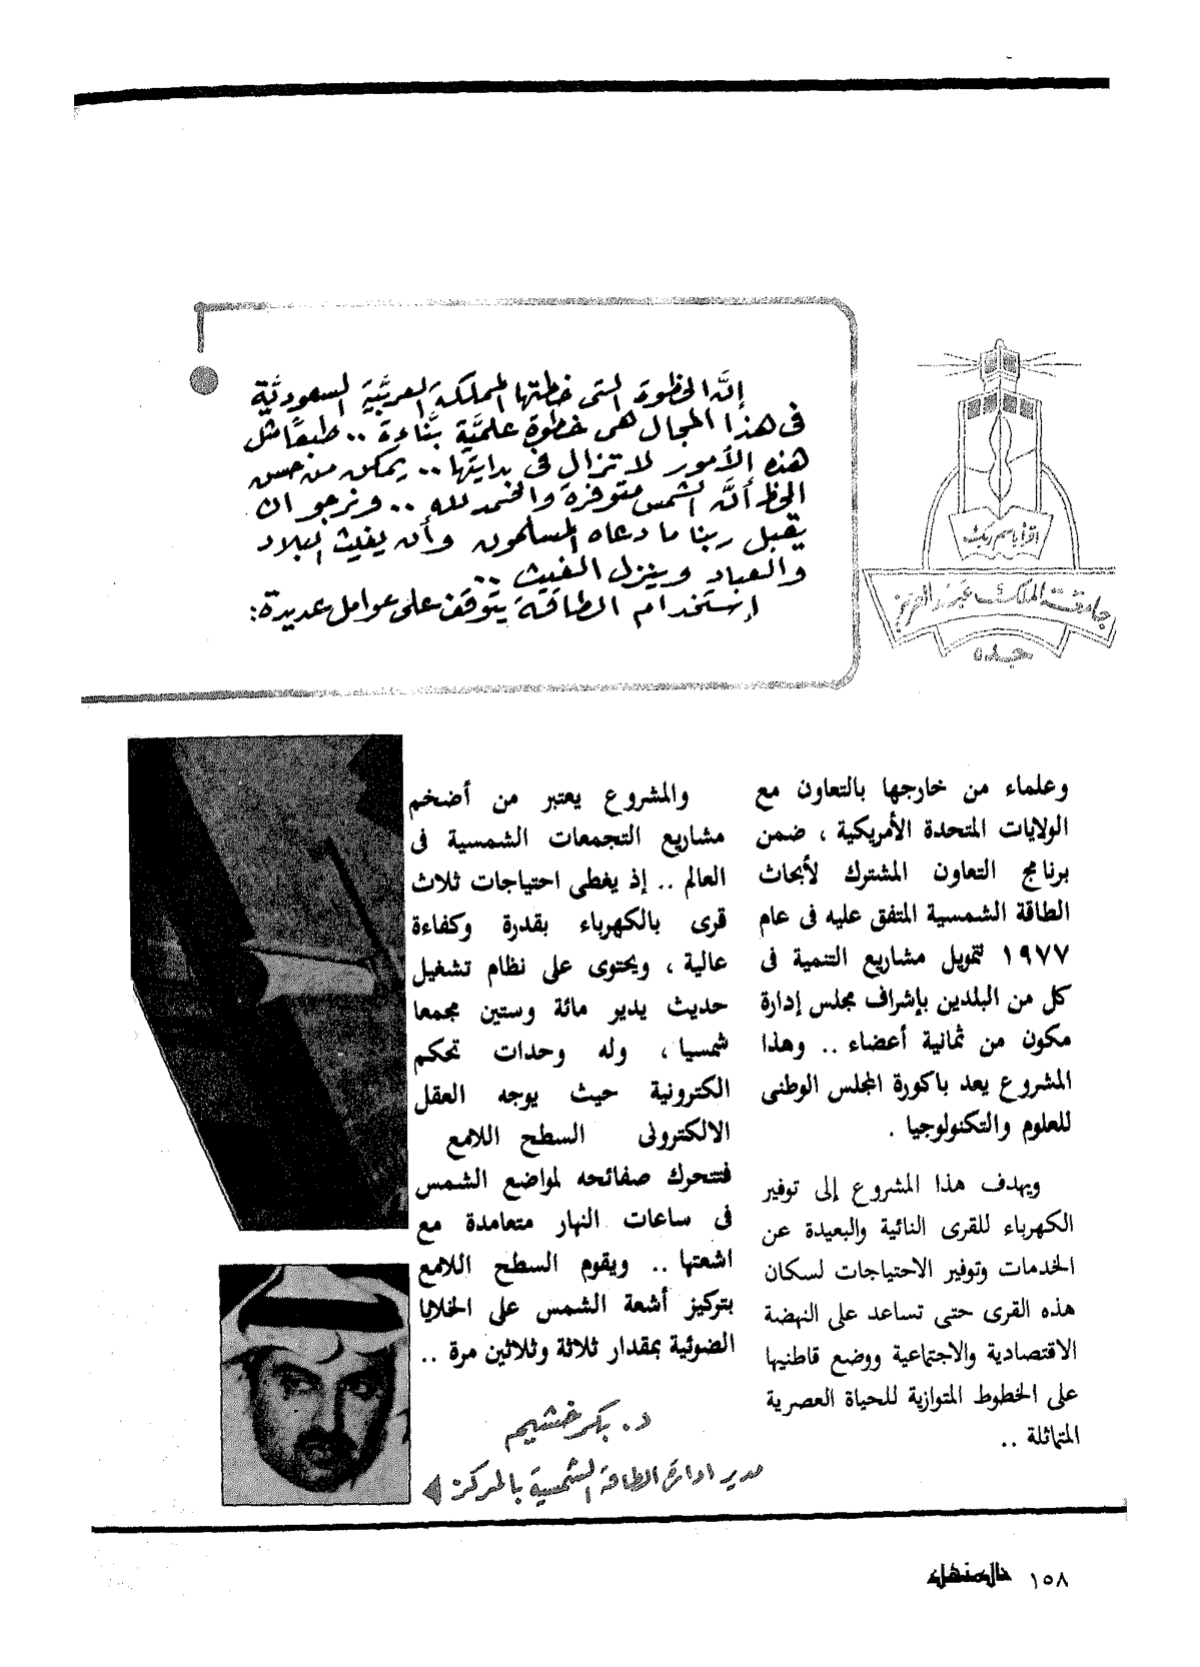 إنَّ الخطوة التى خطتها المملكة العربيَّة السعوديَّة
فى هذا المجال هى خطوة علميَّة بنَّاءة .. طبعًا مثل
هذه الأمور لا تزال فى بدايتها .. يمكن من حسن
الحظ أنَّ الشمس متوفرة والحمد لله .. ونرجو ان
يقبل ربنا ما دعاه المسلمون وأن يغيث البلاد
والعباد وينزل الغيث ..
إستخدام الطاقة يتوقف على عوامل عديدة:
اقرأ باسم ربك
جامعة الملك عبد العزيز
جدة
وعلماء من خارجها بالتعاون مع
الولايات المتحدة الأمريكية ، ضمن
برنامج التعاون المشترك لأبحاث
الطاقة الشمسية المتفق عليه فى عام
١٩٧٧ لتمويل مشاريع التنمية فى
كل من البلدين بإشراف مجلس إدارة
مكون من ثمانية أعضاء .. وهذا
المشروع يعد باكورة المجلس الوطنى
للعلوم والتكنولوجيا .
ويهدف هذا المشروع إلى توفير
الكهرباء للقرى النائية والبعيدة عن
الخدمات وتوفير الاحتياجات لسكان
هذه القرى حتى تساعد على النهضة
الاقتصادية والاجتماعية ووضع قاطنيها
على الخطوط المتوازية للحياة العصرية
المتماثلة ..
والمشروع يعتبر من أضخم
مشاريع التجمعات الشمسية فى
العالم .. إذ يغطى احتياجات ثلاث
قرى بالكهرباء بقدرة وكفاءة
عالية ، ويحتوى على نظام تشغيل
حديث يدير مائة وستين مجمعا
شمسيا ، وله وحدات تحكم
الكترونية حيث يوجه العقل
الالكترونى السطح اللامع
فتتحرك صفائحه لمواضع الشمس
فى ساعات النهار متعامدة مع
اشعتها .. ويقوم السطح اللامع
بتركيز أشعة الشمس على الخلايا
الضوئية بمقدار ثلاثة وثلاثين مرة ..
د. بكر خشيم
مدير ادارة الطاقة الشمسية بالمركز
١٥٨ المنهل